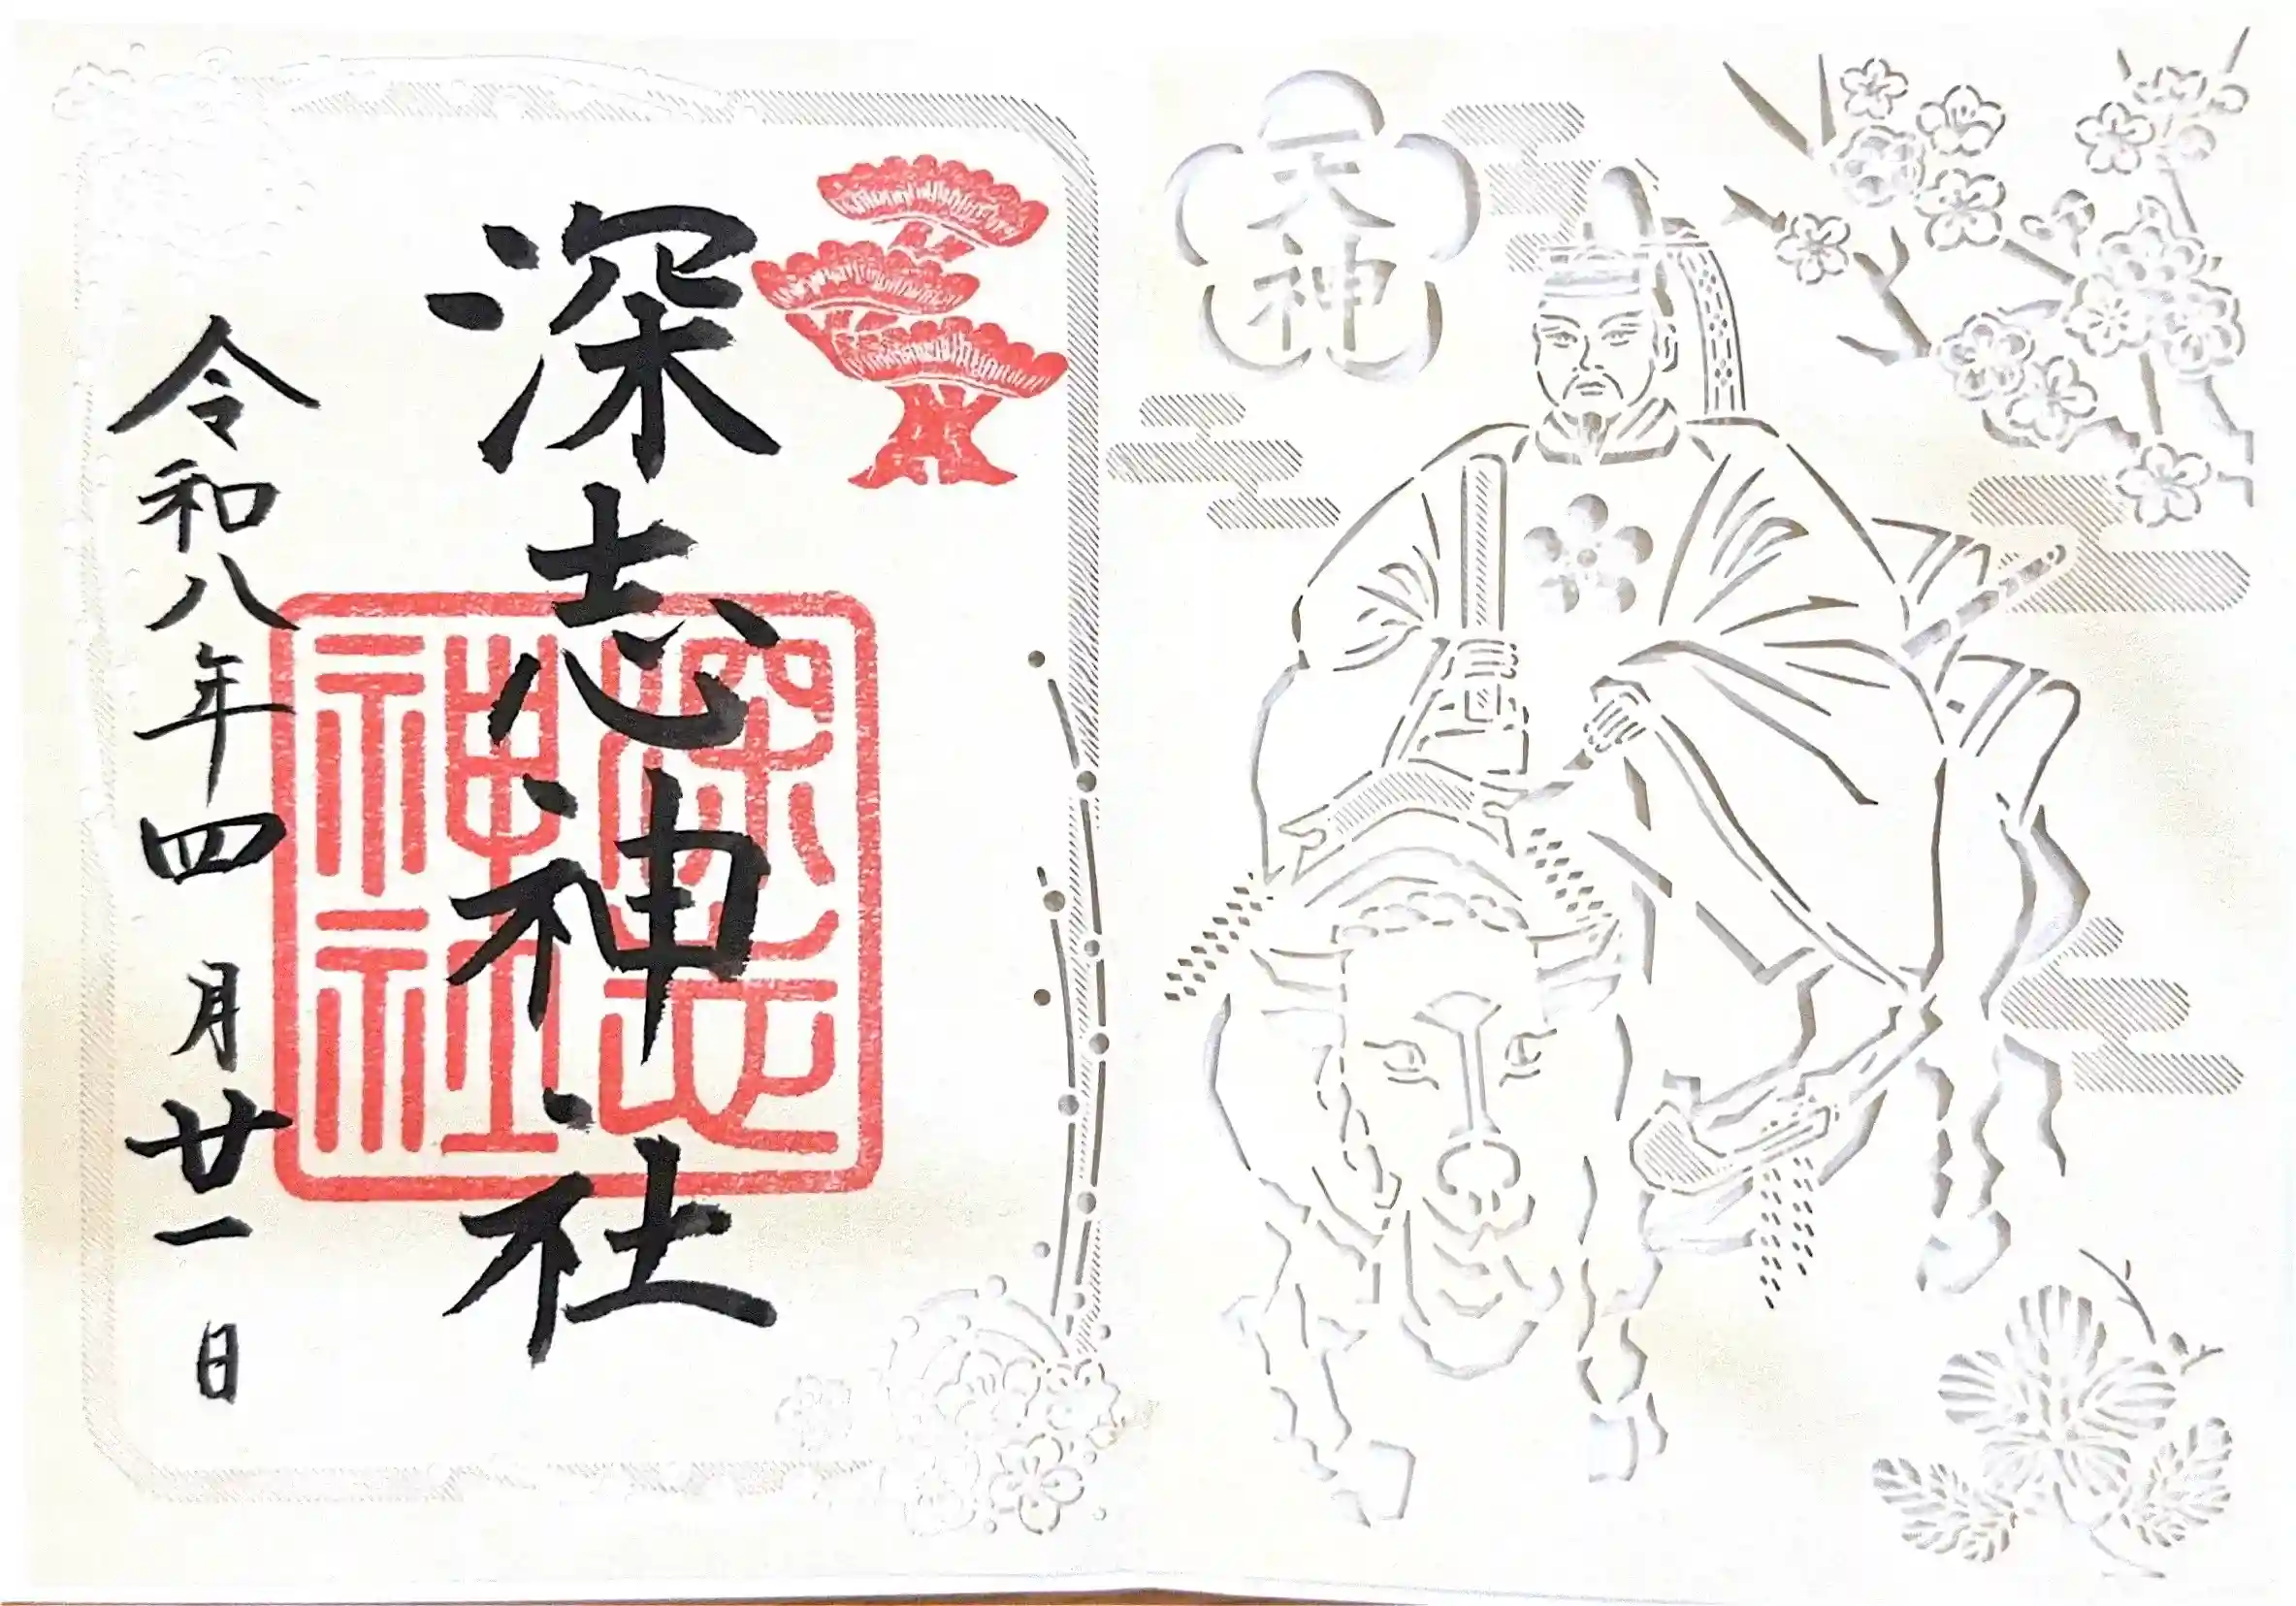 天神
深志神社
深志
神社
令和八年四月廿一日